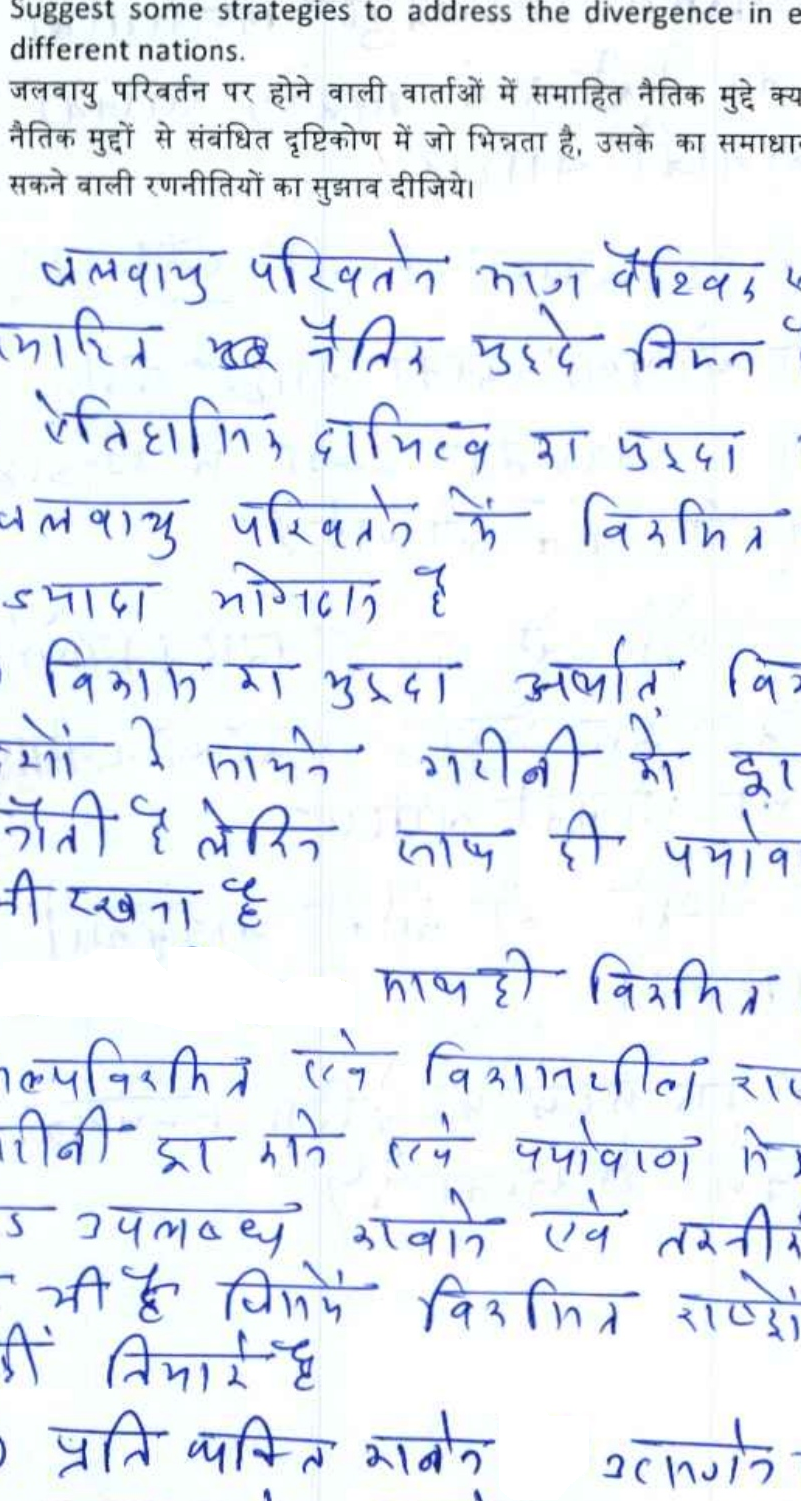 Suggest some strategies to address the divergence in e
different nations.
जलवायु परिवर्तन पर होने वाली वार्ताओं में समाहित नैतिक मुद्दे क्य
नैतिक मुद्दों से संबंधित दृष्टिकोण में जो भिन्नता है, उसके का समाधा
सकने वाली रणनीतियों का सुझाव दीजिये।
जलवायु परिवर्तन आज वैश्विक
नैतिक मुद्दे निम्न
ऐतिहासिक दायित्व का मुद्दा
जलवायु परिवर्तन में विकसित
ज्यादा योगदान है
विकास का मुद्दा अर्थात् वि
के सामने गरीबी को दू
है लेकिन साथ ही पर्याव
भी रखना है
साथ ही विकसित
अल्पविकसित एवं विकासशील
गरीबी दूर करने एवं पर्यावरण
उपलब्ध करवाने एवं तकनी
भी है जिसमें विकसित राष्ट्रों
प्रति व्यक्ति कार्बन उत्सर्जन